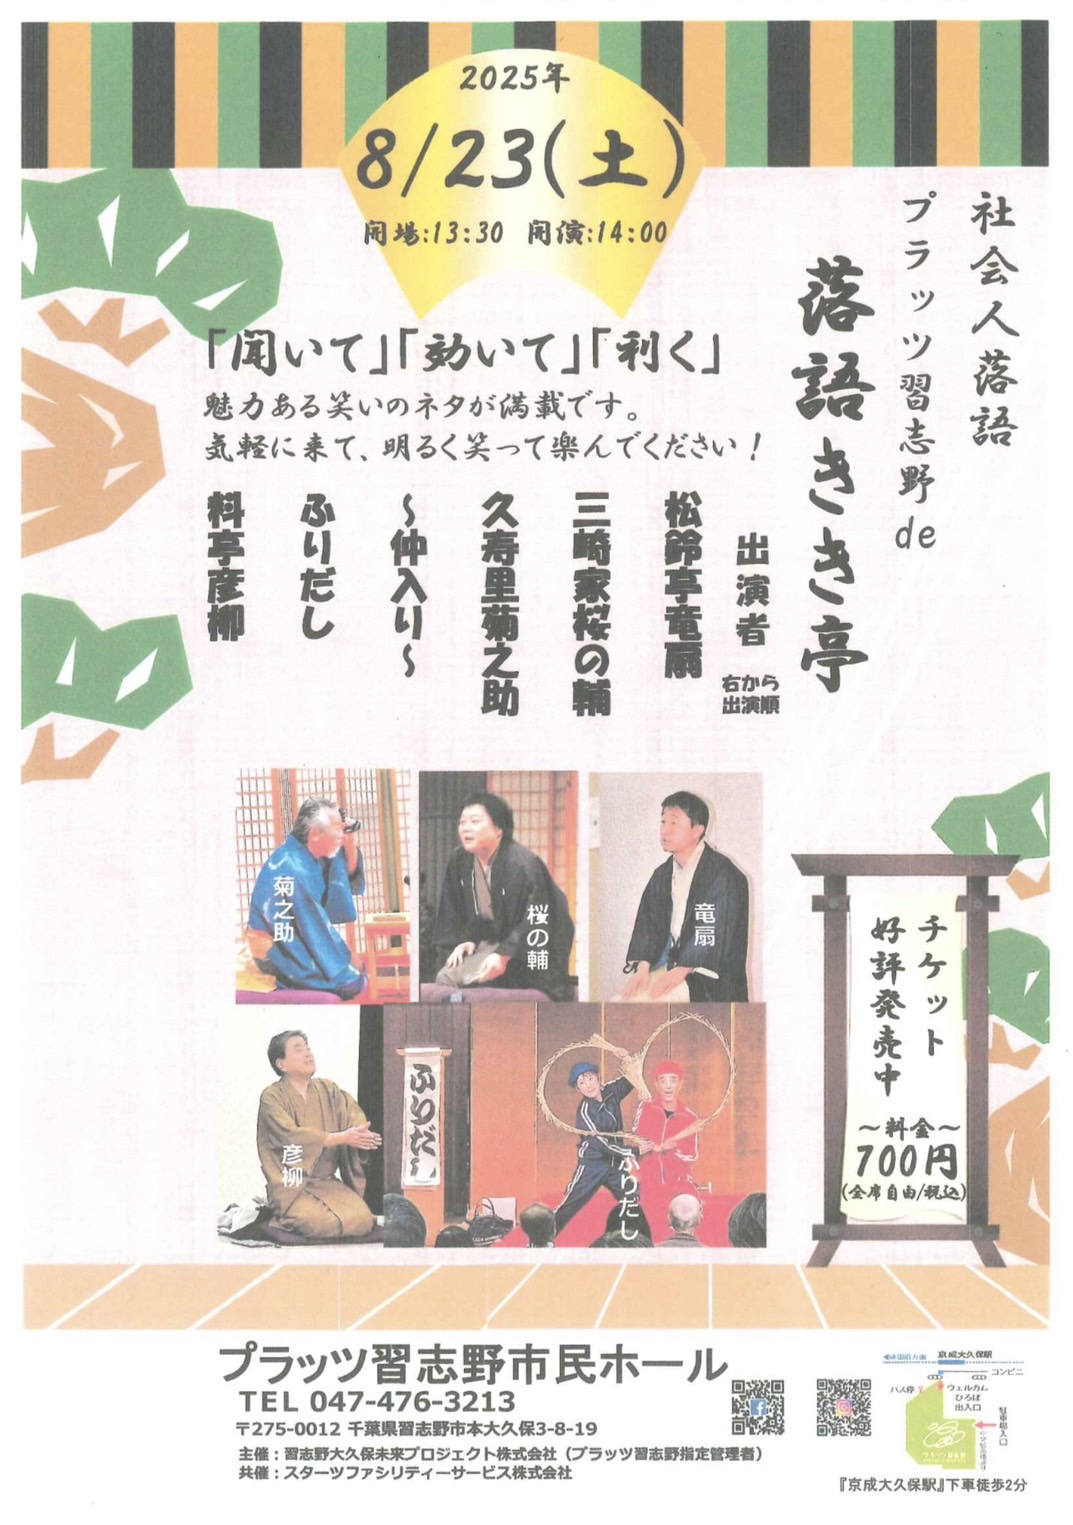 2025年
8/23(土)
開場:13:30 開演:14:00
社会人落語
プラッツ習志野de
落語きき亭
「聞いて」「効いて」「利く」
魅力ある笑いのネタが満載です。
気軽に来て、明るく笑って楽んでください！
出演者
右から
出演順
松鈴亭竜扇
三崎家桜の輔
久寿里菊之助
～仲入り～
ふりだし
料亭彦柳
菊之助
桜の輔
竜扇
彦柳
ふりだし
ふりだし
チケット
好評発売中
～料金～
700円
(全席自由/税込)
プラッツ習志野市民ホール
TEL 047-476-3213
〒275-0012 千葉県習志野市本大久保3-8-19
主催：習志野大久保未来プロジェクト株式会社（プラッツ習志野指定管理者）
共催：スターツファシリティーサービス株式会社
京成大久保駅
コンビニ
バス停
ウェルカム
ひろば
出入口
駐車場入口
『京成大久保駅』下車徒歩2分